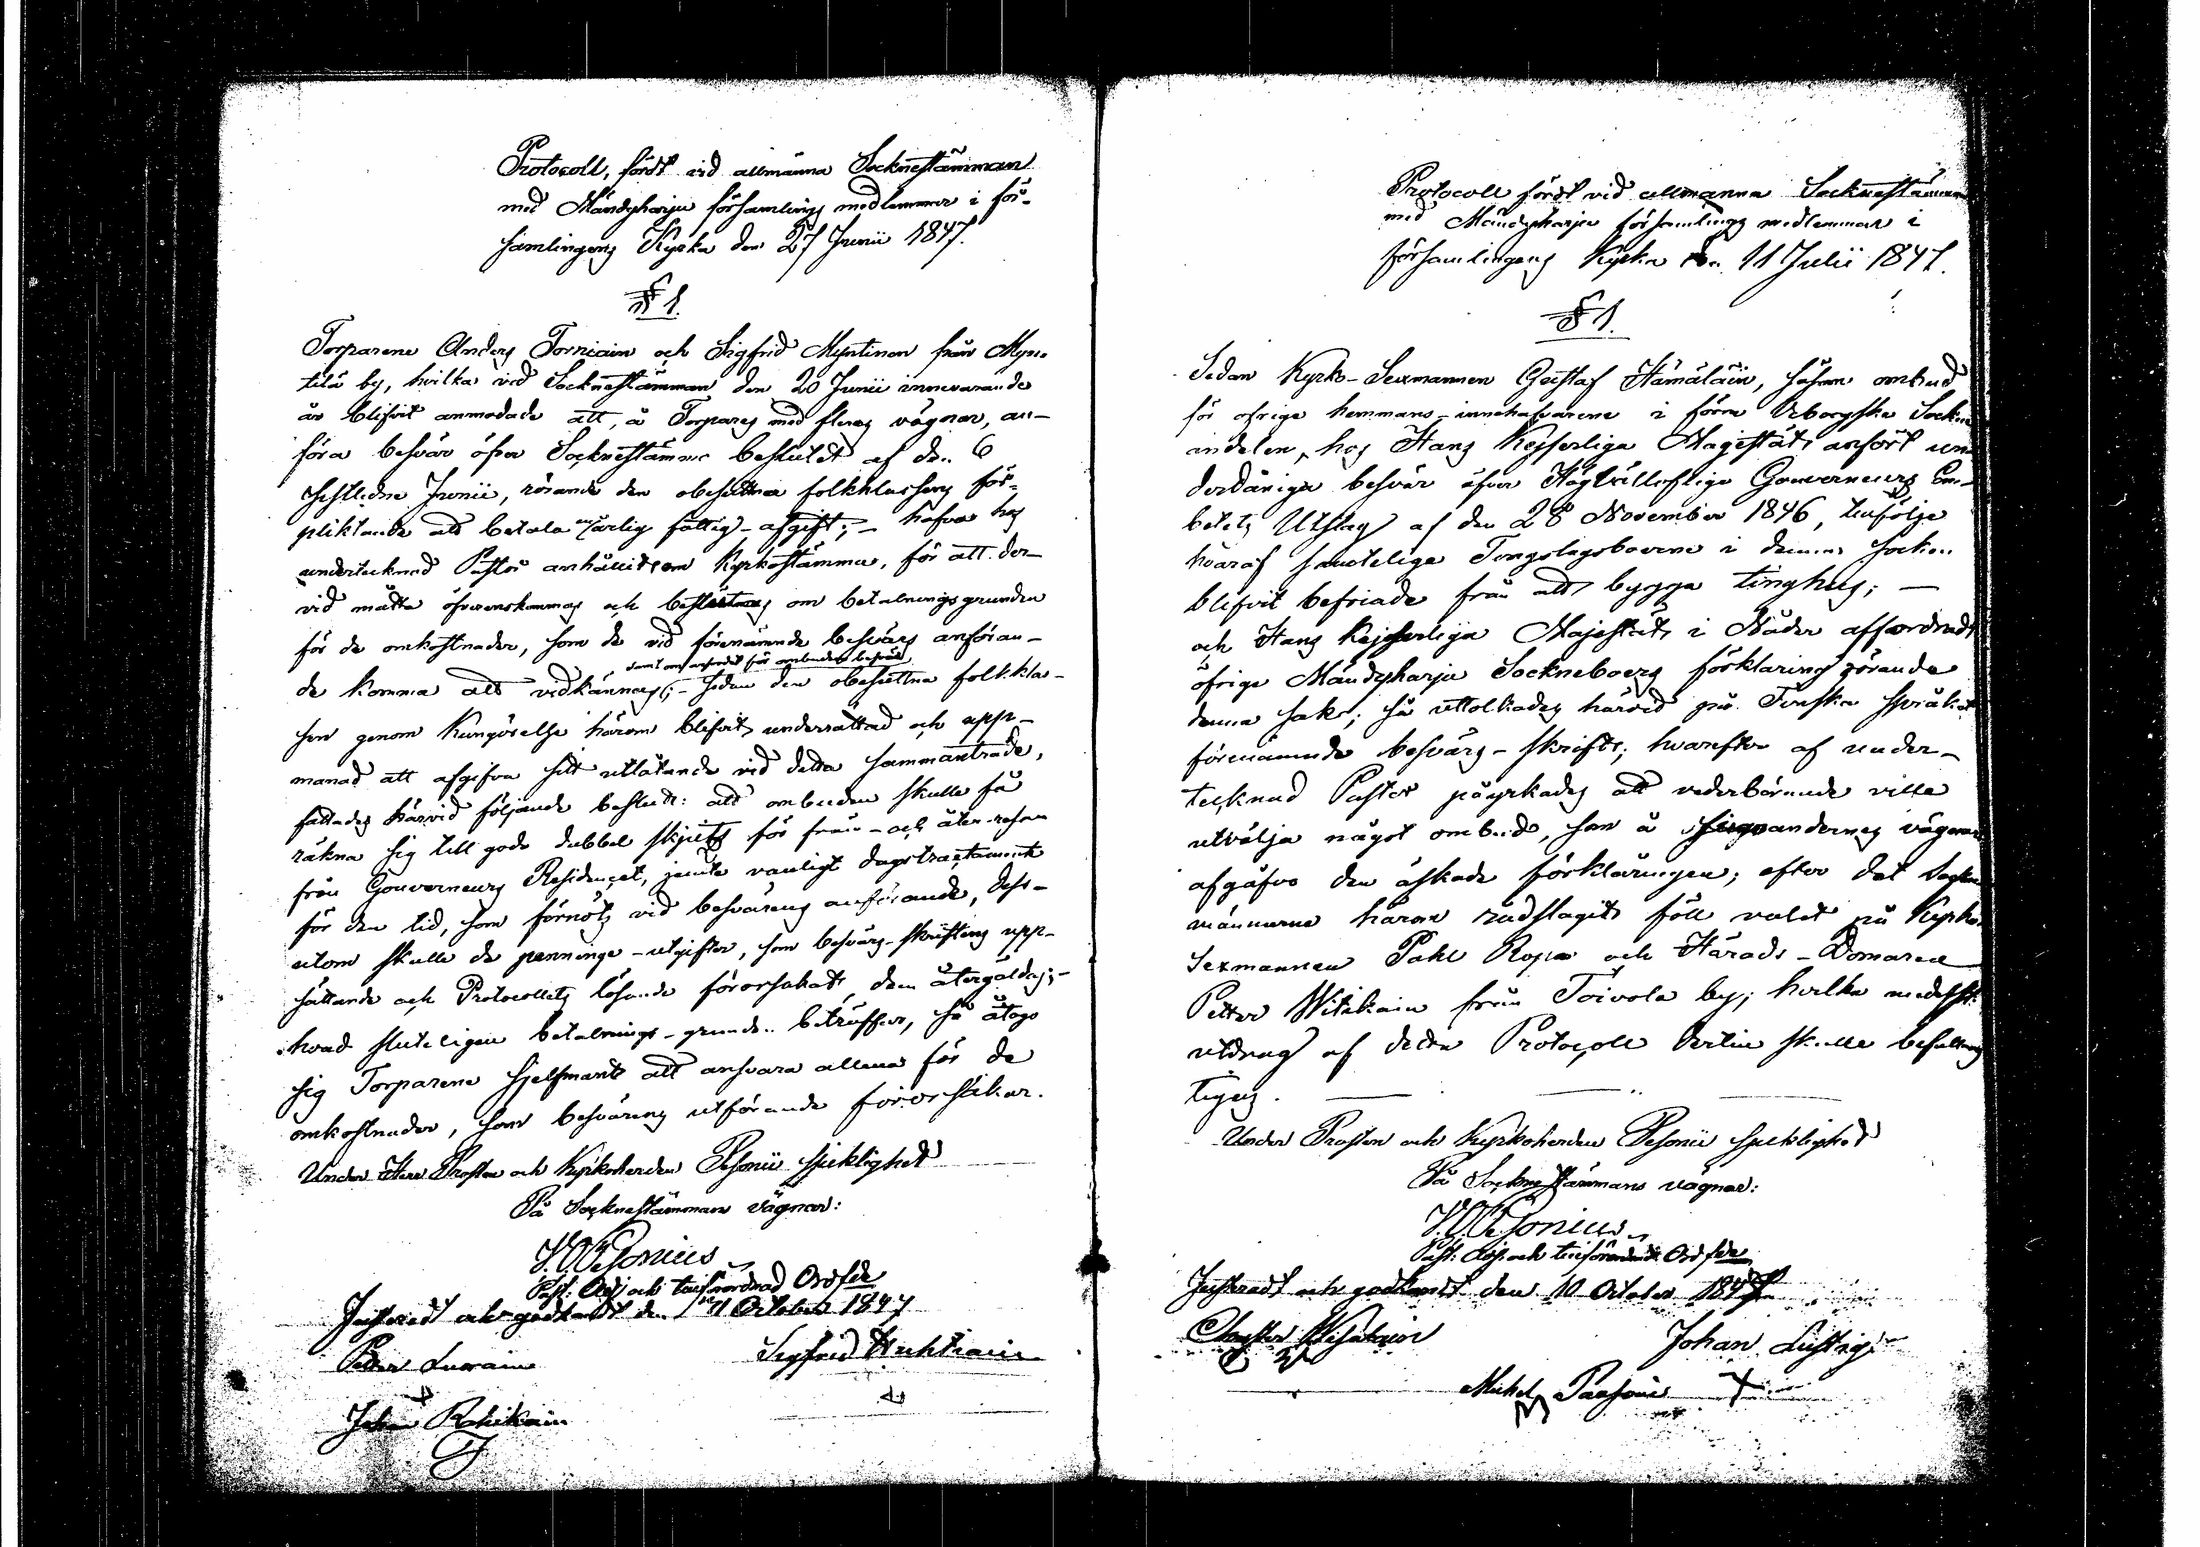 Protocoll, fördt vid allmänna Socknestämman
med Mändyharju församlings medlemmar i för-
samlingens Kyrka den 27 Junii 1847.
§ 1.
Torparene Anders Torniain och Sigfrid Myntinen från Myn-
tilä by, hvilka vid Socknestämman den 20 Junii innevarande
år blifvit anmodade att, å Torpares med fleras vägnar, an-
föra besvär öfver Socknestämmo beslutet af den 6
sistledne Junii, rörande den obesuttna folkklassens för-
pliktande att betala en årlig fattig-afgift; - hafva hos
undertecknad Pastor anhållit om Kyrkostämma, för att der-
vid måtta öfverenskommas och beslutas om betalningsgrunden
för de omkostnader, som de vid förenämnde besvärs anföran-
samt om arfvodet för ombudens besvär
de komma att vidkännas; - Sedan den obesuttna folkklas-
sen genom Kungörelse härom blifvit underrättad och upp-
manad att afgifva sitt utlåtande vid detta sammanträde,
fattades härvid följande beslut: att ombuden skulle få
räkna sig till godo dubbel skjuts för fram- och åter-resan
från Gouverneurs Residencet, jemte vanligt dagstractamente
för den tid, som förnöts vid besvärens anförande, dess-
utom skulle de penninge-utgifter, som besvärs-skriftens upp-
sättande och Protocollets lösande förorsakat, dem återgäldas; -
hvad sluteligen betalnings-grunden beträffar, så åtogo
sig Torparene sjelfmant att ansvara allena för de
omkostnader, som besvärens utförande förorsakar.
Under Herr Prosten och Kyrkoherden Pesonii sjuklighet
På Socknestämmans vägnar:
Pesonius
Past: Adj och tillförordnad Ordfde
Justeradt och godkändt den 11 October 1847
Petter Lurain
Sigfrid Huhtiain
Johan Rahikain
Protocoll fördt vid allmänna Socknestämman
med Mändyharju församlings medlemmar i
församlingens Kyrka den 11 Julii 1847.
§ 1.
Sedan Kyrko-Sexmannen Gustaf Hämäläin, såsom ombud
för öfrige hemmans-innehafvarene i förra Wiborgska Sockne
andelen, hos Hans Kejserliga Majestät anfört un-
derdåniga besvär öfver Högvällofliga Gouverneurs Em-
betets Utslag af den 28 November 1846, till följe
hvaraf samtelige Tingslagsboerne i denna socken
blifvit befriade från att bygga tinghus; -
och Hans Kejserliga Majestät i Nåder affordradt
öfrige Mändyharju Sockneboers förklaring rörande
denna sak; så uttolkades härvid på Finska språket
förenämnde besvärs-skrift; hvarefter af under-
tecknad Pastor påyrkades att vederbörande ville
utvälja något ombud, som å vägnar
afgåfve den äskade förklaringen; efter det Socken
männerne härom rådslagit föll valet på Kyrko-
Sexmannen Pahl Ropo och Härads-Domaren
Petter Witikain från Toivola by; hvilka medelst
utdrag af detta Protocoll härtill skulle befullmäg
tigas.
Under Prosten och Kyrkoherden Pesonii sjuklighet
På Socknestämmans vägnar:
Pesonius
Past: Adj. och tillförordnad Ordfde
Justeradt och godkändt den 10 October 1847
Johan Lustig
Michel Paasoin